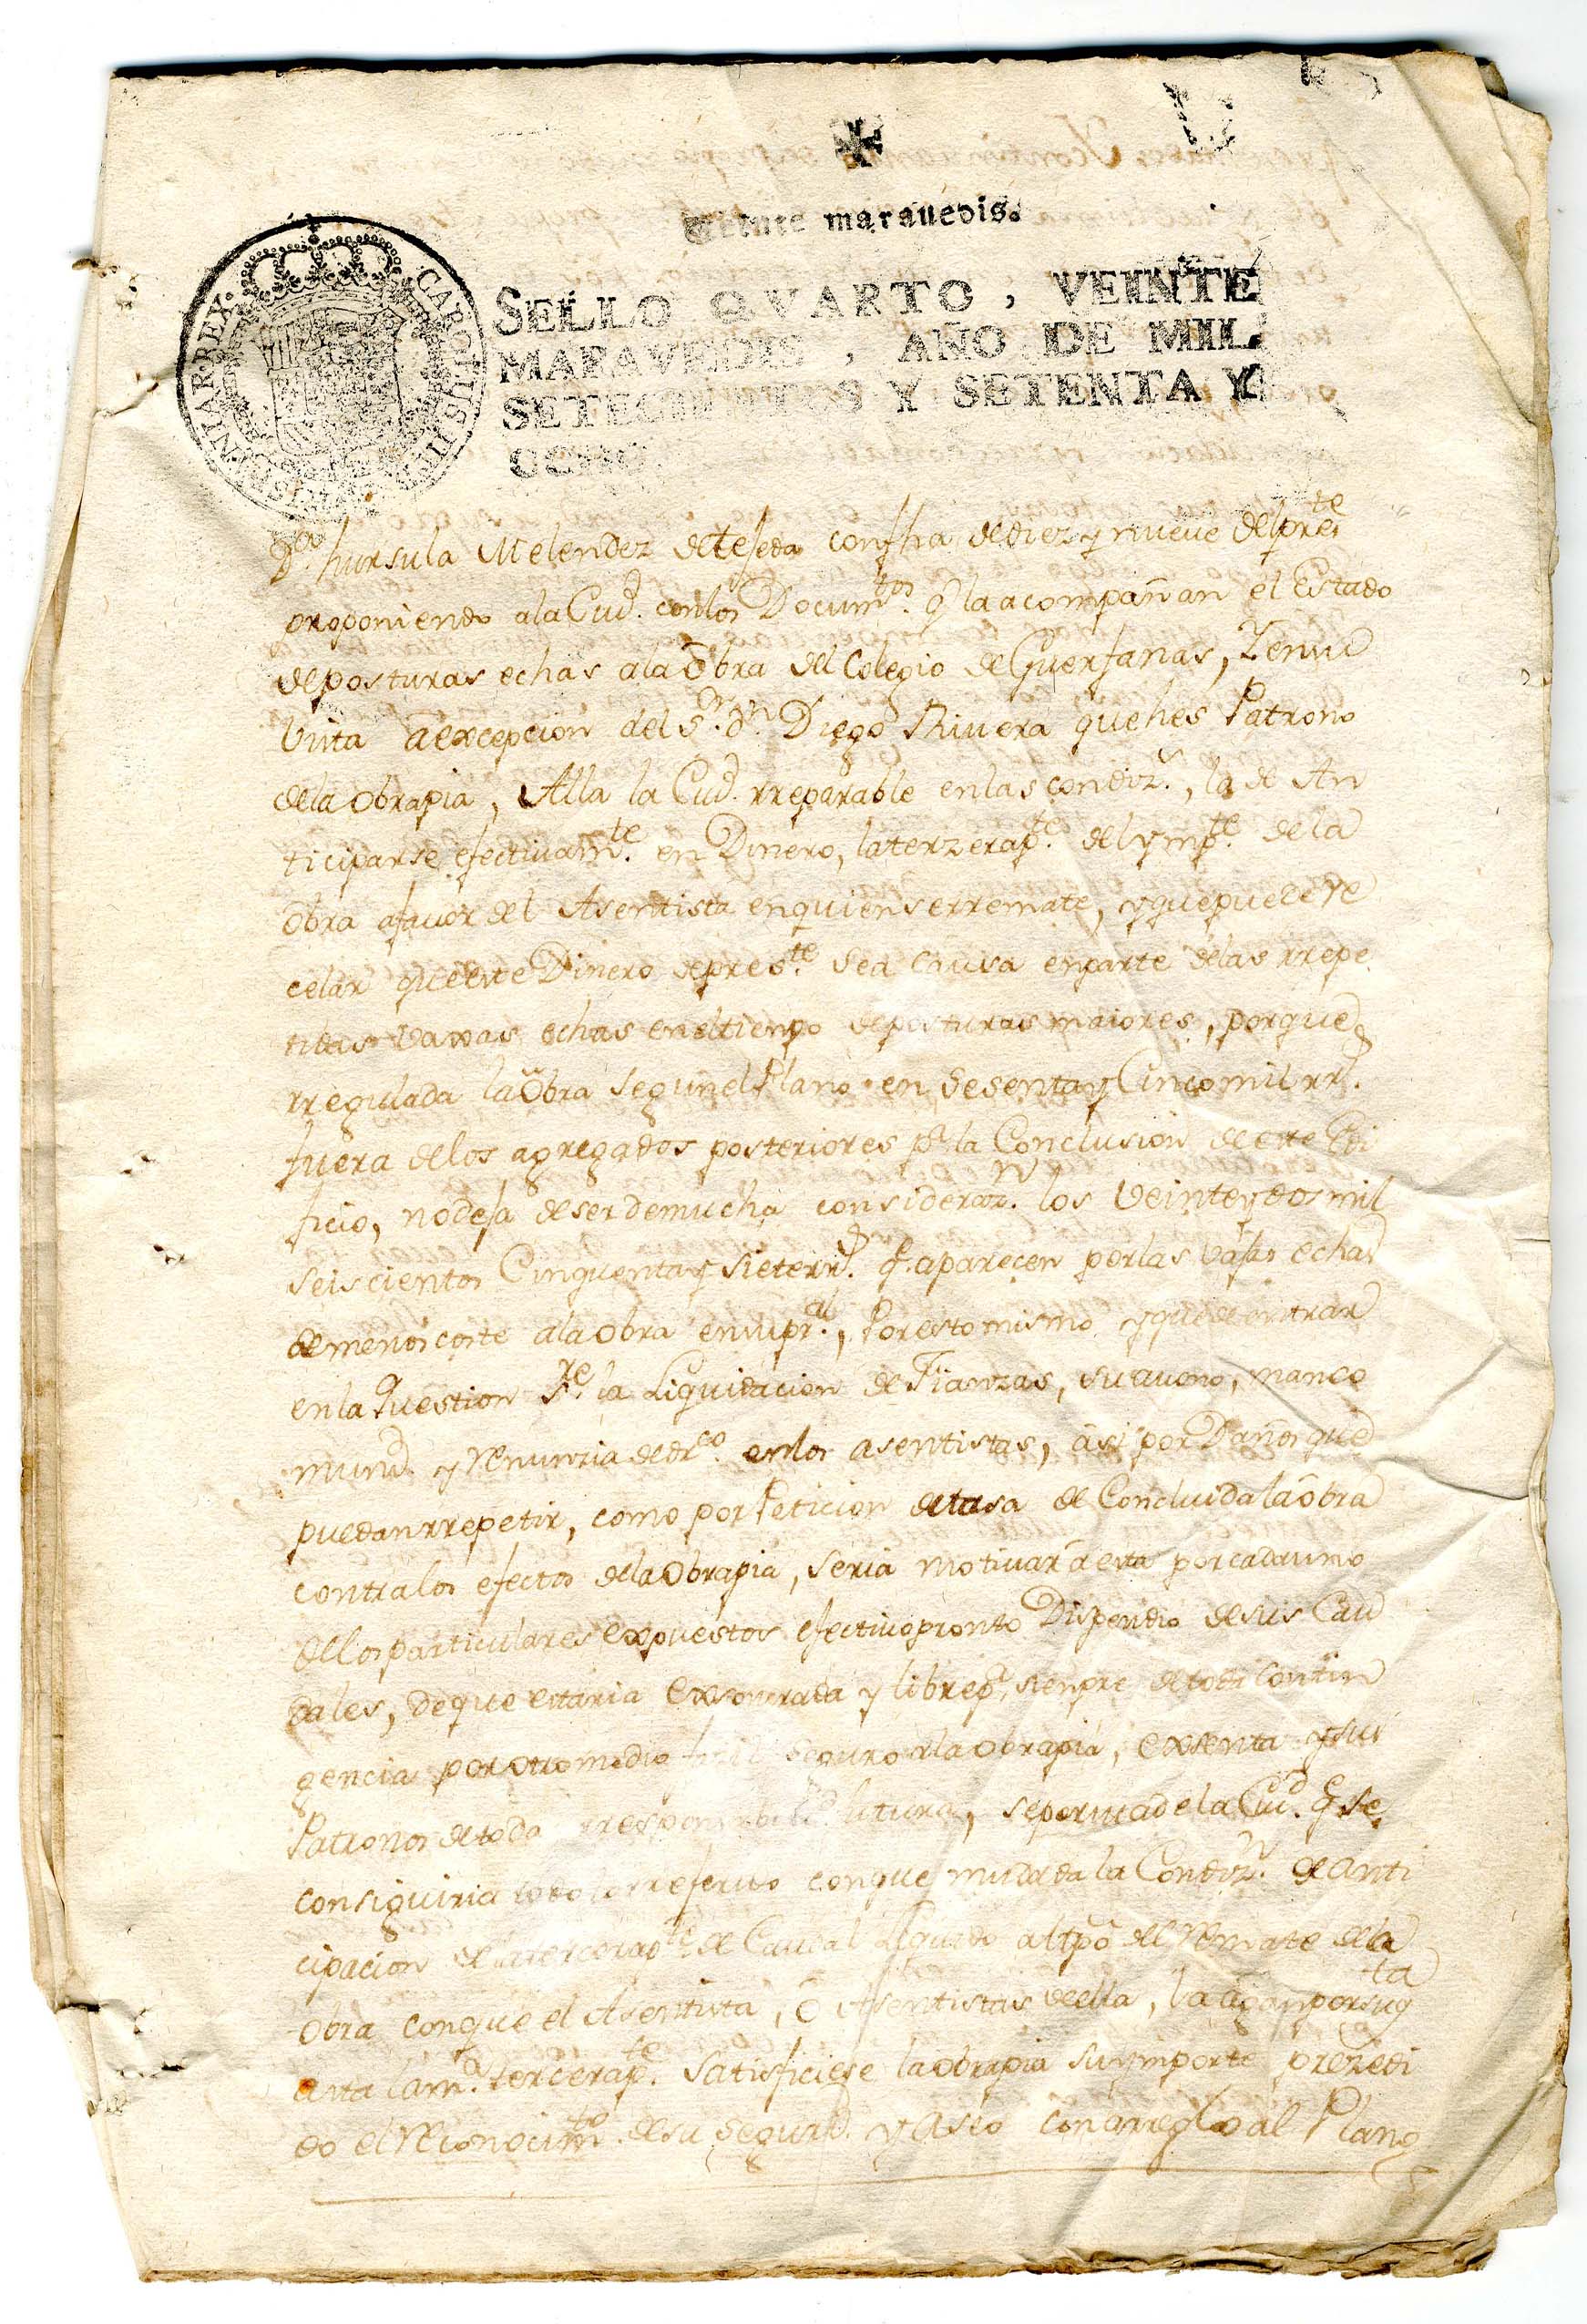 Veinte marauedis.
SELLO QVARTO, VEINTE
MARAVEDIS, AÑO DE MIL
SETECIENTOS Y SETENTA Y
OCHO.
CAROLUS III HISPANIAR. REX.
D.ª hursula Melendez deteJeda con fha dediez y nueve delpres.te
proponiendo ala Ciud. con los Docum.tos q la acompañan el Estado
deposturas echas ala obra del Colegio de Guerfanas, Yensu
Vista aexcepcion del S.r d.n Diego Rivera quehes Patrono
dela Obrapia, Alla la Ciud. rreparable en las condiz.n, la de An
ticiparse efectivam.te en Dinero, laterzerap.te del ymp.te de la
Obra afavor del Asentista enquien serremate, yquepuede re
celar que este Dinero depres.te sea causa enparte delas rrepe
tidas Vaxas echas eneltienpo deposturas maiores, porque
rregulada la Obra segun el Plano en Sesentay Cinco mil rr.s
fuera delos agregados posteriores p.a la Conclusion de este Edi
ficio, nodeJa deser demucha consideraz.n los Veinteydos mil
seiscientos Cinquentay sieterr.s q. aparecen porlas vaJas echas
demenos coste ala Obra ensupr.al, Poresto mismo yquede entrar
enla question S.re la Liquidacion de Fianzas, su avono, manco
mund. y Renunzia de dr.co enlos asentistas, asi por Daños que
puedan rrepetir, como por Peticion detasa de Concluida laobra
contralos efectos dela Obrapia, seria motivar aesta porcadauno
dellos particulares expuestos efectivopronto Dispendio desus Cau
dales, deque estaria exsonerada y librep.a sienpre detoda Contin
gencia porotromedio seguro ala obrapia, exsenta ysus
Patronos detoda rresponsabilid. futura, sepersuadela Ciud. q. se
consiguiria todo lorreferido conque mudada la Condiz.n de anti
cipacion de la tercerap.te de Caudal Liquido altpo del Remate dela
Obra conque el Asentista, ò Asentistas deella, la agan porsuq.ta
asta lam.a tercerap.te satisficiese laobrapia suymporte prezedi
do elReconocim.to desu segurid. y Aseo con arreglo al Plano